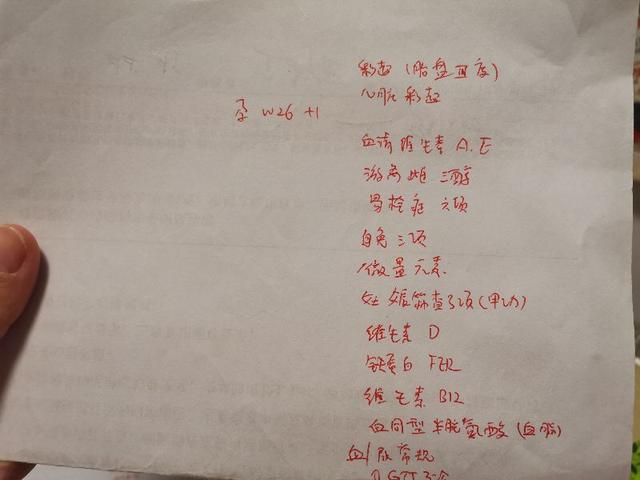 彩超（胎盘Ⅱ度）
心脏彩超
孕 W26 +1
血清维生素 A.E
游离雌三醇
易栓症六项
自免三项
微量元素
妊娠筛查3项(甲功)
维生素 D
铁蛋白 FER
维生素 B12
血同型半胱氨酸(血脂)
血/尿常规
OGTT